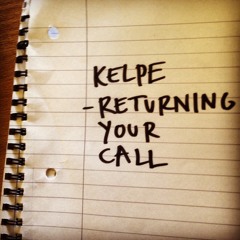 KELPE
-RETURNING
YOUR
CALL